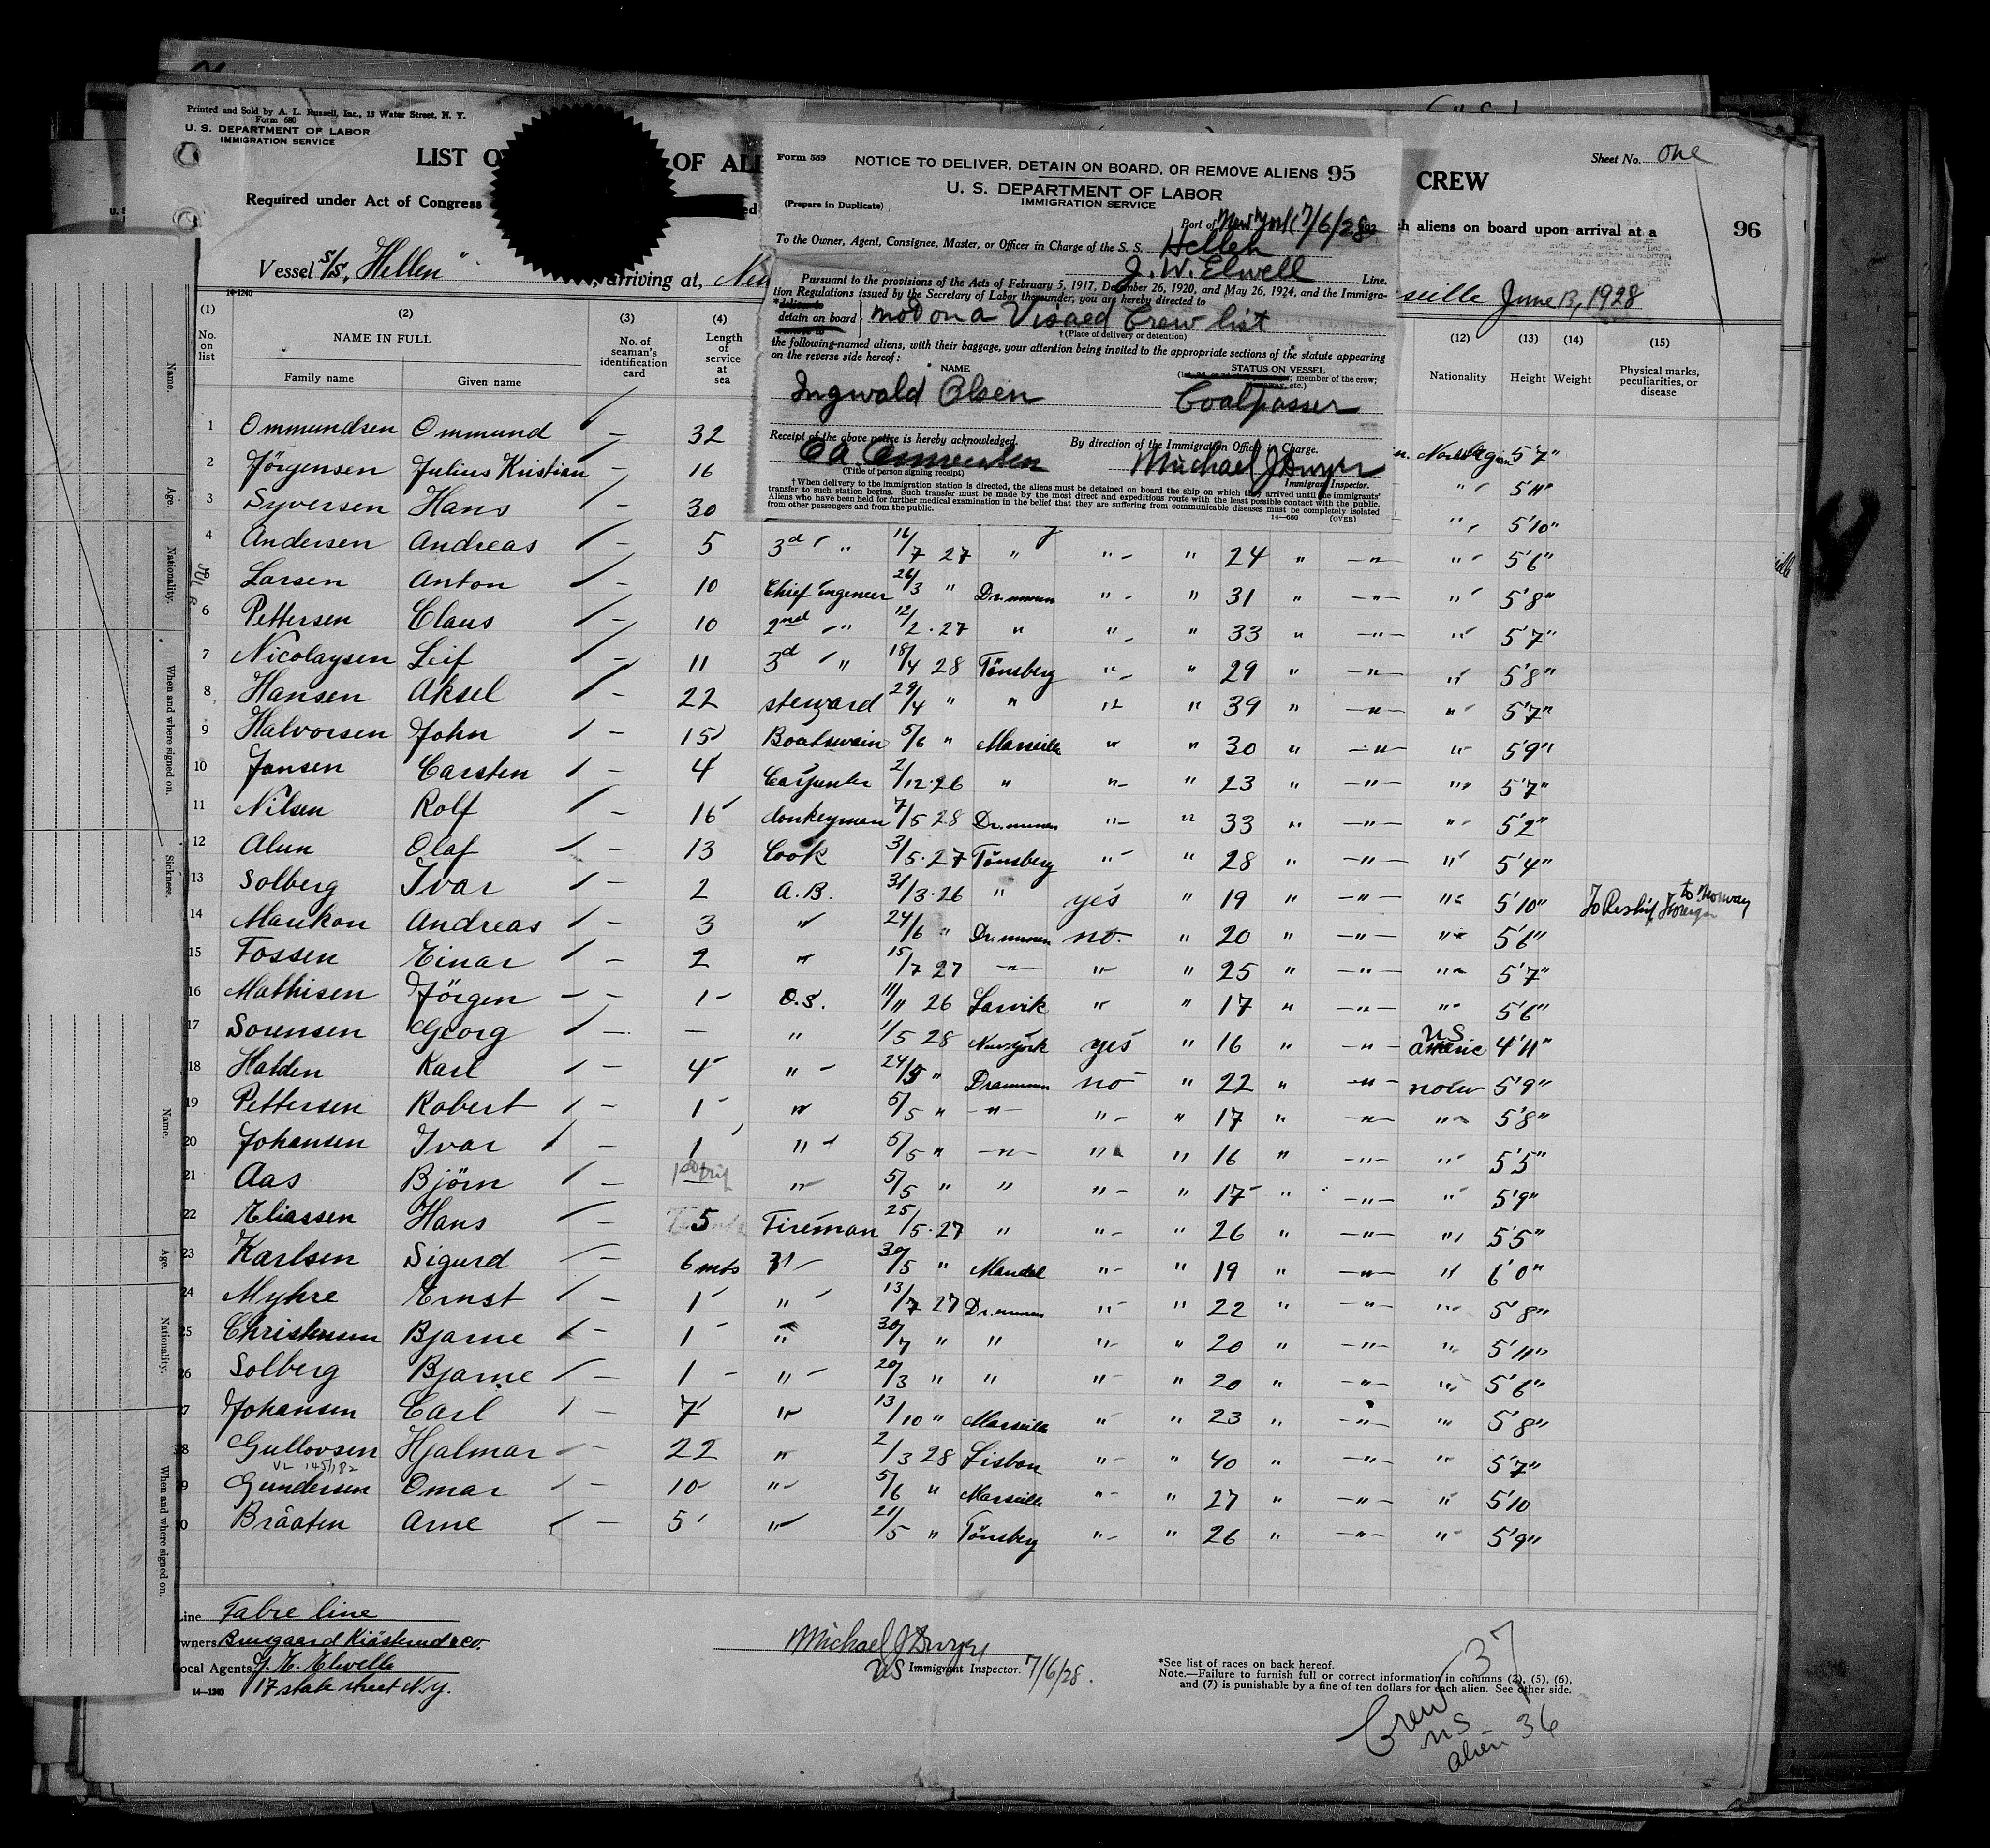 Printed and Sold by A. L. Russell, Inc., 13 Water Street, N. Y.
Form 680
U. S. DEPARTMENT OF LABOR
IMMIGRATION SERVICE
LIST O
OF ALI
CREW
Sheet No. One
Required under Act of Congress
ed
ch aliens on board upon arrival at a
96
Vessel S/S. "Hellen"
, arriving at, New
seille June 13, 1928
14-1240
Form 559
NOTICE TO DELIVER, DETAIN ON BOARD, OR REMOVE ALIENS 95
U. S. DEPARTMENT OF LABOR
IMMIGRATION SERVICE
(Prepare in Duplicate)
Port of New York 7/6/28
To the Owner, Agent, Consignee, Master, or Officer in Charge of the S. S. Hellen
J. W. Elwell Line.
Pursuant to the provisions of the Acts of February 5, 1917, December 26, 1920, and May 26, 1924, and the Immigra-
tion Regulations issued by the Secretary of Labor thereunder, you are hereby directed to
detain on board
not on a Visaed Crew list
†(Place of delivery or detention)
the following-named aliens, with their baggage, your attention being invited to the appropriate sections of the statute appearing
on the reverse side hereof:
NAME
STATUS ON VESSEL
member of the crew;
etc.)
Ingwald Olsen
Coalpasser
Receipt of the above notice is hereby acknowledged.
By direction of the Immigration Officer in Charge.
Michael J Dwyer
(Title of person signing receipt)
Immigrant Inspector.
†When delivery to the immigration station is directed, the aliens must be detained on board the ship on which they arrived until the immigrants'
transfer to such station begins. Such transfer must be made by the most direct and expeditious route with the least possible contact with the public.
Aliens who have been held for further medical examination in the belief that they are suffering from communicable diseases must be completely isolated
from other passengers and from the public.
14—660 (OVER)
(1) (2) (3) (4) (12) (13) (14) (15)
No. on list
NAME IN FULL
Family name
Given name
No. of seaman's identification card
Length of service at sea
Nationality
Height
Weight
Physical marks, peculiarities, or disease
1 Ommundsen Ommund — 32 Norwegian 5'7"
2 Jörgensen Julius Kristian — 16 " 5'11"
3 Syversen Hans — 30 " 5'10"
4 Andersen Andreas — 5 3d " 16/7 27 " " " 24 " —"— " 5'6"
5 Larsen Anton — 10 Chief Engeneer 26/3 " Drammen " " 31 " —"— " 5'8"
6 Pettersen Claus — 10 2nd " 12/2 . 27 " " " 33 " —"— " 5'7"
7 Nicolaysen Leif — 11 3d " 18/4 28 Tönsberg " " 29 " —"— " 5'8"
8 Hansen Aksel — 22 steward 29/4 " " " " 39 " —"— " 5'7"
9 Halvorsen John — 15 Boatswain 5/6 " Marseille " " 30 " —"— " 5'9"
10 Jansen Carsten — 4 Carpenter 2/12.26 " " " 23 " —"— " 5'7"
11 Nilsen Rolf — 16 donkeyman 7/5 28 Drammen " " 33 " —"— " 5'2"
12 Alun Olaf — 13 Cook 3/5.27 Tönsberg " " 28 " —"— " 5'4"
13 Solberg Ivar — 2 A.B. 31/3.26 " yes " 19 " —"— " 5'10" To Reship Foreign to Norway
14 Maukon Andreas — 3 " 24/6 " Drammen no. " 20 " —"— " 5'6"
15 Fossen Einar — 2 " 15/7 27 —"— " " 25 " —"— " 5'7"
16 Mathisen Jörgen — 1 O.S. 11/11 26 Larvik " " 17 " —"— " 5'6"
17 Sorensen Georg — — " 1/5 28 New York yes " 16 " —"— US 4'11"
18 Halden Karl — 4 " 24/5 " Drammen no " 22 " —"— norw 5'9"
19 Pettersen Robert — 1 " 5/5 " —"— " " 17 " —"— " 5'8"
20 Johansen Ivar — 1 " 5/5 " —"— " " 16 " —"— " 5'5"
21 Aas Björn — 1st trip " 5/5 " " " " 17 " —"— " 5'9"
22 Eliassen Hans — 5 Fireman 25/5.27 " " " 26 " —"— " 5'5"
23 Karlsen Sigurd — 6 mts " 30/5 " Mandal " " 19 " —"— " 6'0"
24 Myhre Ernst — 1 " 13/7 27 Drammen " " 22 " —"— " 5'8"
25 Christensen Bjarne — 1 " 30/7 " " " " 20 " —"— " 5'11"
26 Solberg Bjarne — 1 " 20/3 " " " " 20 " —"— " 5'6"
27 Johansen Carl — 7 " 13/10 " Marseille " " 23 " —"— " 5'8"
28 Gullovsen Hjalmar — 22 " 2/3 28 Lisbon " " 40 " —"— " 5'7"
29 Gundersen Omar — 10 " 5/6 " Marseille " " 27 " —"— " 5'10
30 Bråaten Arne — 5 " 21/5 " Tönsberg " " 26 " —"— " 5'9"
Line Fabre line
wners Bruusgaard Kiösterud & Co.
ocal Agents J. W. Elwell
17 state street N.Y.
14—1240
Michael J Dwyer
US Immigrant Inspector. 7/6/28.
*See list of races on back hereof.
Note.—Failure to furnish full or correct information in columns (2), (5), (6),
and (7) is punishable by a fine of ten dollars for each alien. See other side.
Crew 37
US
alien 36
Name.
Age.
Nationality.
When and where signed on.
Sickness.
Name.
Age.
Nationality.
When and where signed on.